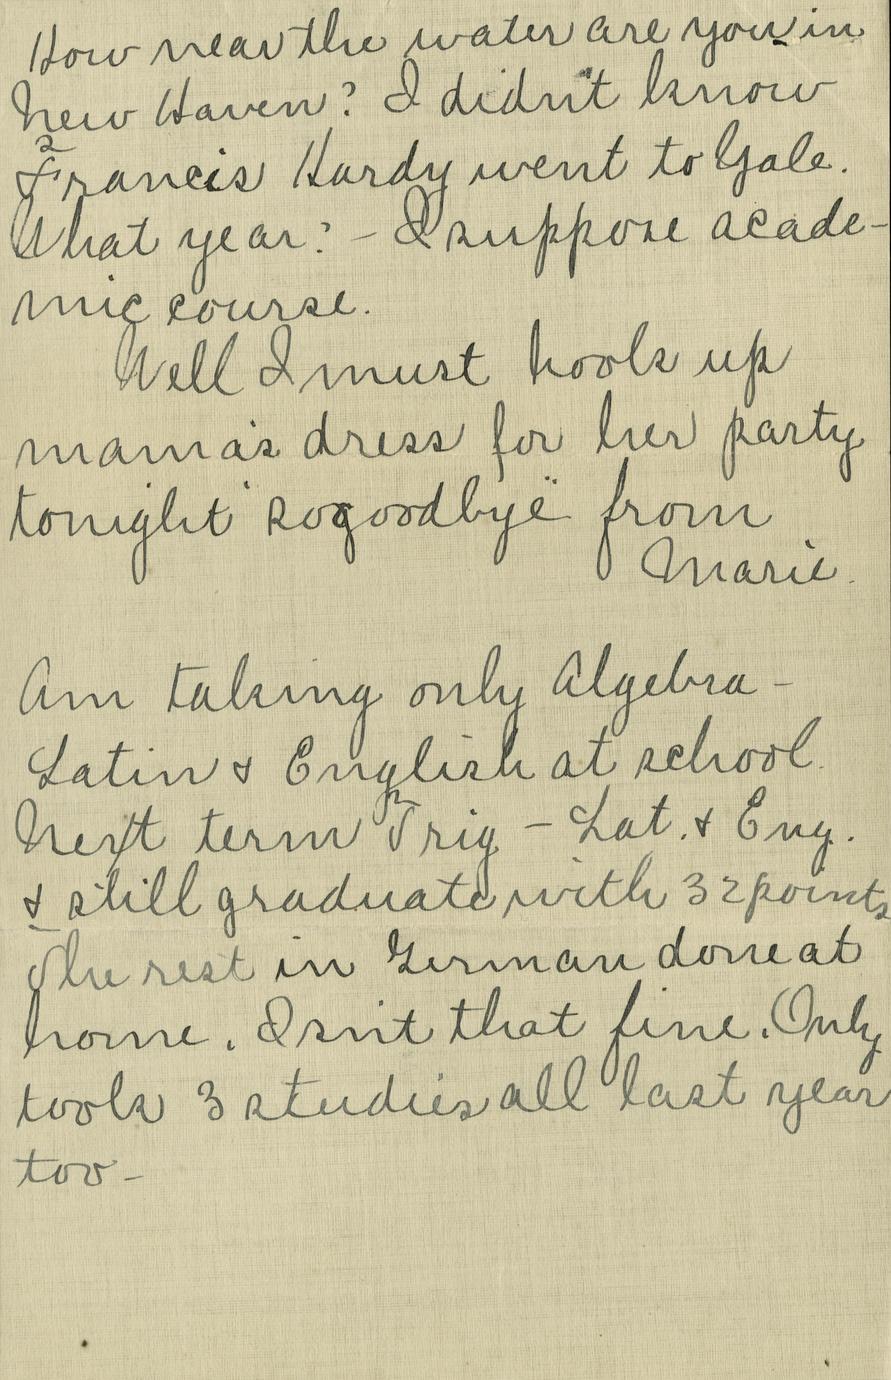 How near the water are you in
New Haven? I didn't know
Francis Hardy went to Yale.
What year? - I suppose acade-
mic course.
Well I must hook up
mama's dress for her party
tonight so goodbye from
Marie.
Am taking only Algebra -
Latin & English at school.
Next term Trig - Lat. & Eng.
& still graduate with 32 points
The rest in German done at
home. Isn't that fine. Only
took 3 studies all last year
too -